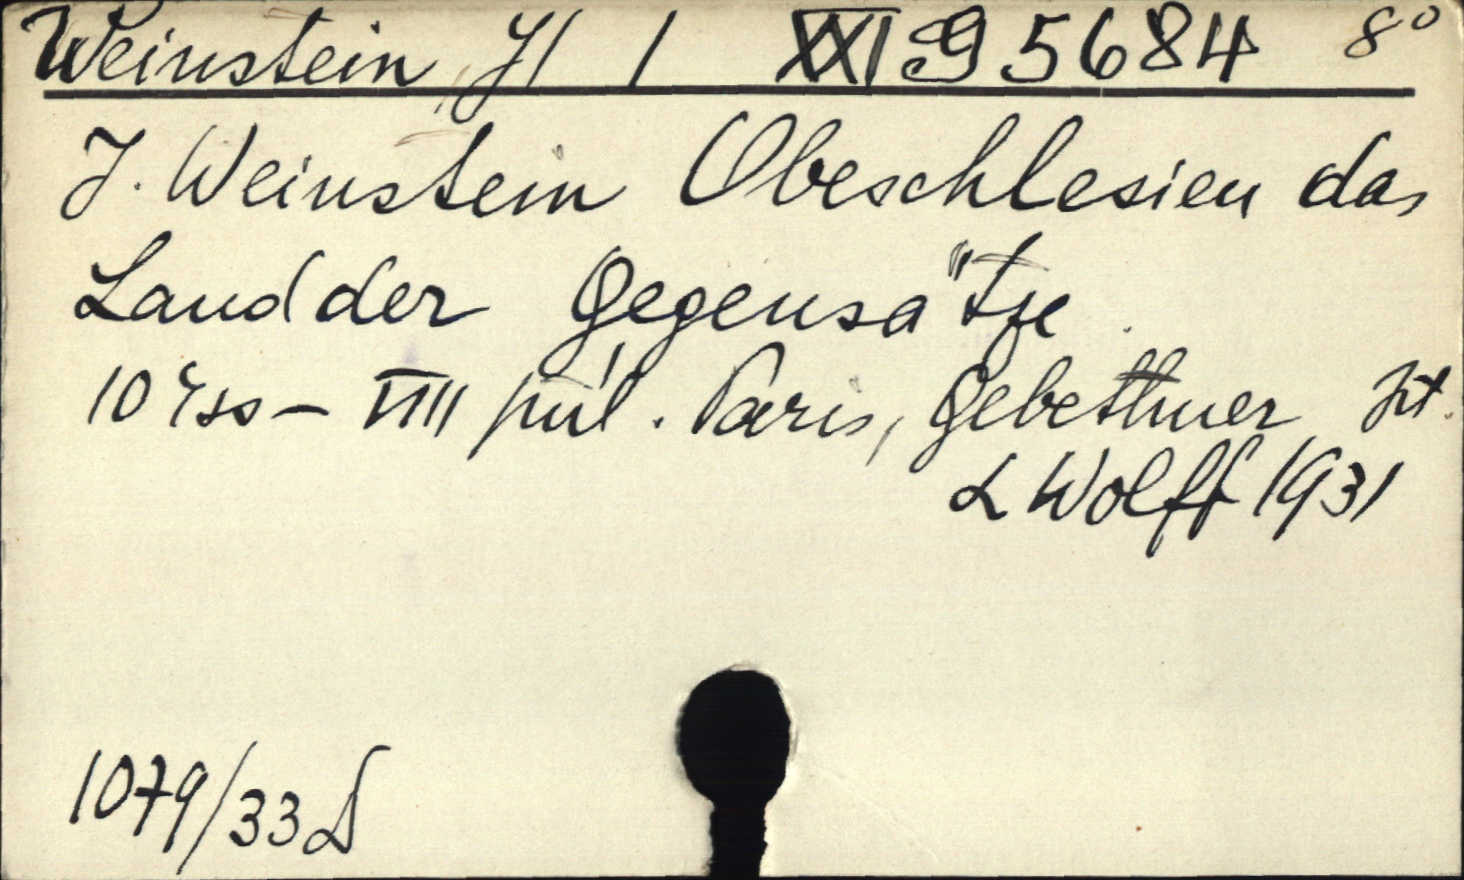 Weinstein, J. 1 XXI 95684 8°
J. Weinstein Obeschlesien das
Land der Gegensätze.
VIII Paris, Gebethner
& Wolff 1931
1079/33